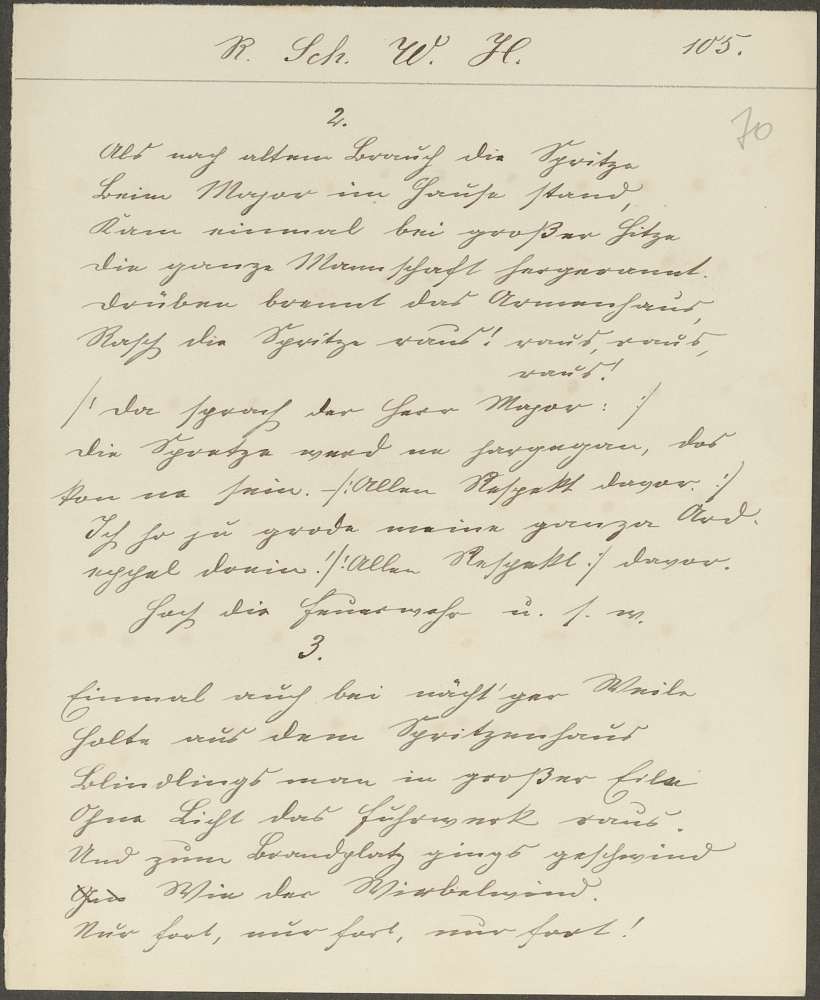 R. Sch. W. H. 105.
70
2.
Als nach altem Brauch die Spritze
Beim Major im Hause stand,
Kam einmal bei großer Hitze
Die ganze Mannschaft hergerannt.
Drüben brennt das Armenhaus,
Rasch die Spritze raus! raus, raus,
raus!
/: Da sprach der Herr Major: :/
Die Spretze werd ne hargegan, das
kon ne sein. /: Allen Respekt davor. :/
Ich ho zu grode meine ganza Ard-
eppel drein! /: Allen Respekt :/ davor.
Hoch die Feuerwehr u. s. w.
3.
Einmal auch bei nächt'ger Weile
Holte aus dem Spritzenhaus
Blindlings man in großer Eile
Ohne Licht das Fuhrwerk raus.
Und zum Brandplatz gings geschwind
Wie der Wirbelwind.
Nur fort, nur fort, nur fort!